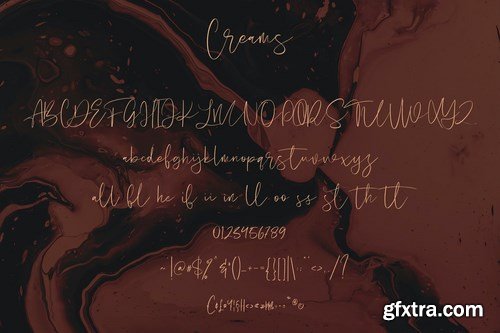 Creams
ABCDEFGHIJKLMNOPQRSTUVWXYZ
abcdefghijklmnopqrstuvwxyz
all fl he if ii in ll oo ss st th tt
0123456789
gfxtra.com